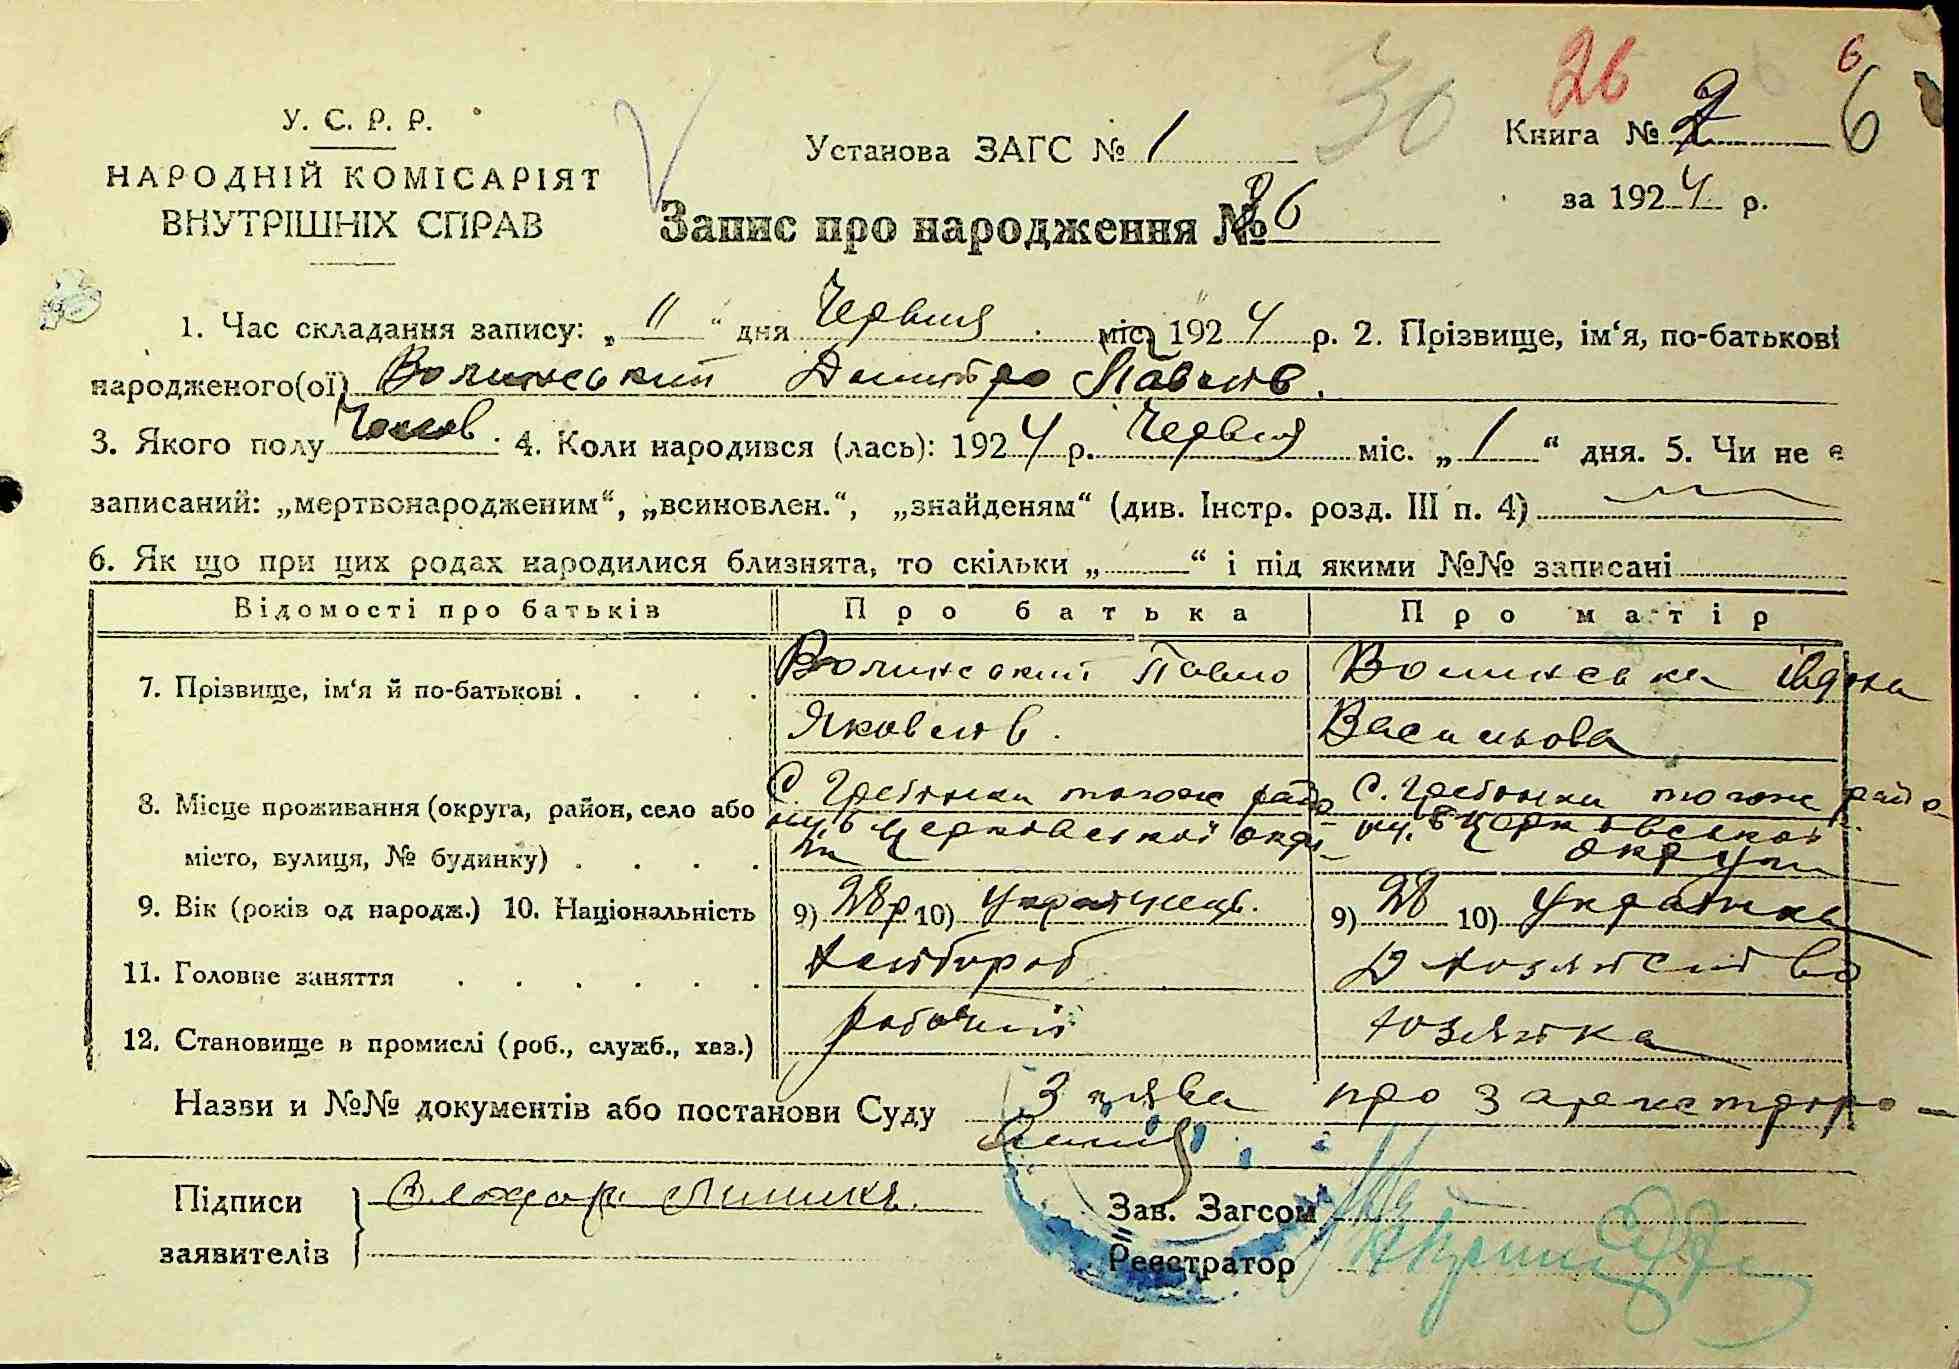 26
6
30
6
У. С. Р. Р.
НАРОДНІЙ КОМІСАРІЯТ
ВНУТРІШНІХ СПРАВ
Установа ЗАГС № 1
Книга № 2
за 1924 р.
Запис про народження № 36
1. Час складання запису: „ 11 “ дня Червня міс. 1924 р. 2. Прізвище, ім‘я, по-батькові
народженого(ої) Волинський Дмитро Павлов.
3. Якого полу Чолов. 4. Коли народився (лась): 1924 р. Червня міс. „ 1 “ дня. 5. Чи не є
записаний: „мертвонародженим“, „всиновлен.“, „знайденям“ (див. Інстр. розд. III п. 4)
6. Як що при цих родах народилися близнята, то скільки „ “ і під якими №№ записані
Відомості про батьків Про батька Про матір
7. Прізвище, ім‘я й по-батькові . . . . Волинський Павло Волинська Івдоки
Яковлів. Васильова
8. Місце проживання (округа, район, село або С. Гребінки того ж райо С. Гребінки того ж райо
місто, вулиця, № будинку) . . . . ну, Б Церковської округи ну, Б Церковської округи
9. Вік (років од народж.) 10. Національність 9) 28р 10) Українець. 9) 28 10) Українка
11. Головне заняття . . . . . . Хлібороб Д хозяйство
12. Становище в промислі (роб., служб., хаз.) рабочий хозяйка
Назви и №№ документів або постанови Суду Заява про зареєстро-
вання
Підписи
заявителів
Зав. Загсом
Реєстратор